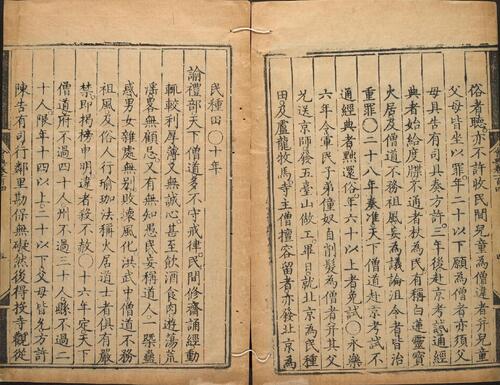 俗者聽亦不許收民間兒童為僧違者并兒童
父母皆坐以罪年二十以下願為僧者亦須父
母具告有司具奏方許三年後赴京考試通經
典者始給度牒不通者杖為民有稱白蓮靈寶
火居及僧道不務祖風妄為議論沮令者皆治
重罪〇二十八年奏准天下僧道赴京考試不
通經典者黜還俗年六十以上者免試〇永樂
六年令軍民子弟僮奴自削髮為僧者并其父
兄送京師發五臺山做工畢日就北京為民種
田及盧龍牧馬寺主僧擅容留者亦發北京為
民種田〇十年
諭禮部天下僧道多不守戒律民間修齋誦經動
輒較利厚薄又無誠心甚至飲酒食肉遊蕩荒
淫畧無顧忌又有無知愚民妄稱道人一槩蠱
惑男女雜處無别敗壞風化洪武中僧道不務
祖風及俗人行瑜珈法稱火居道士者俱有嚴
禁即揭榜申明違者殺不赦〇十六年定天下
僧道府不過四十人州不過三十人縣不過二
十人限年十四以上二十以下父母皆允方許
陳告有司行鄰里勘保無礙然後得投寺觀從